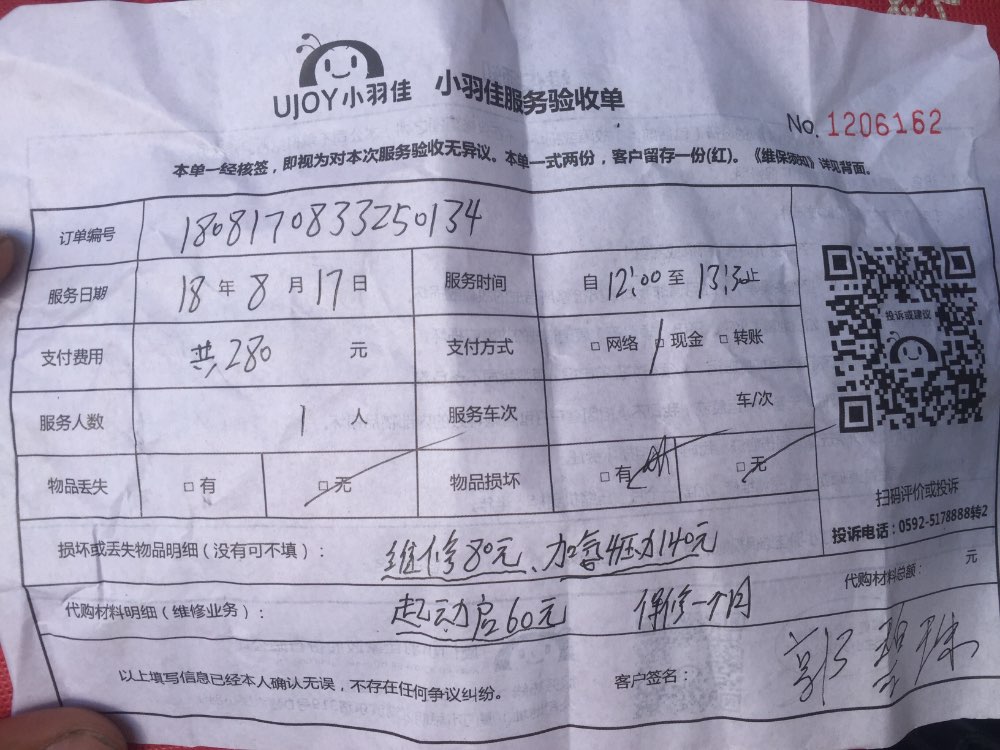 UJOY小羽佳 小羽佳服务验收单
No. 1206162
本单一经核签，即视为对本次服务验收无异议。本单一式两份，客户留存一份(红)。《维保须知》详见背面。
订单编号 1808170833250134
服务日期 18 年 8 月 17 日 服务时间 自 12:00 至 13:30 止
支付费用 共280 元 支付方式 □ 网络 □ 现金 □ 转账
服务人数 1 人 服务车次 车/次
物品丢失 □ 有 □ 无 物品损坏 □ 有 □ 无
投诉或建议
扫码评价或投诉
投诉电话：0592-5178888转2
损坏或丢失物品明细（没有可不填）： 维修80元、加氟4压力140元
代购材料总额： 元
代购材料明细（维修业务）： 起动启60元 保修一个月
以上填写信息已经本人确认无误，不存在任何争议纠纷。 客户签名：